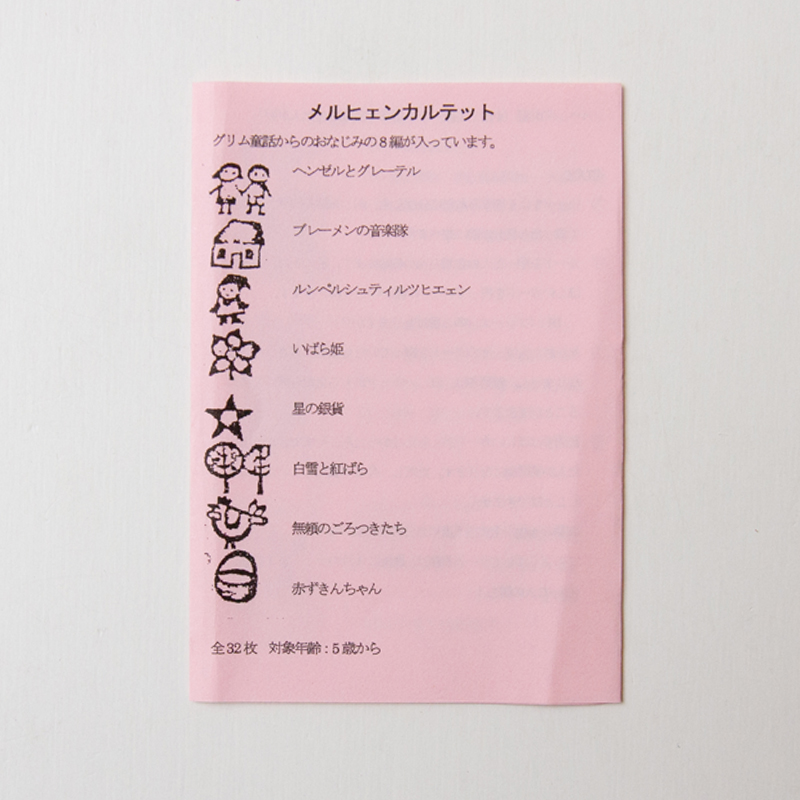 メルヒェンカルテット
グリム童話からのおなじみの８編が入っています。
ヘンゼルとグレーテル
ブレーメンの音楽隊
ルンペルシュティルツヒエェン
いばら姫
星の銀貨
白雪と紅ばら
無頼のごろつきたち
赤ずきんちゃん
全32枚　対象年齢：５歳から